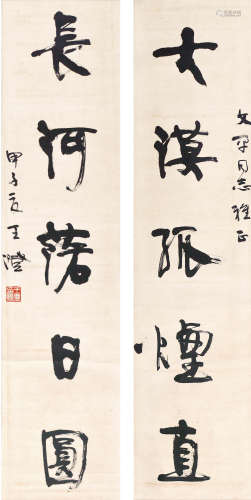 大漠孤煙直
文同志雅正
長河落日圓
甲子 王澄